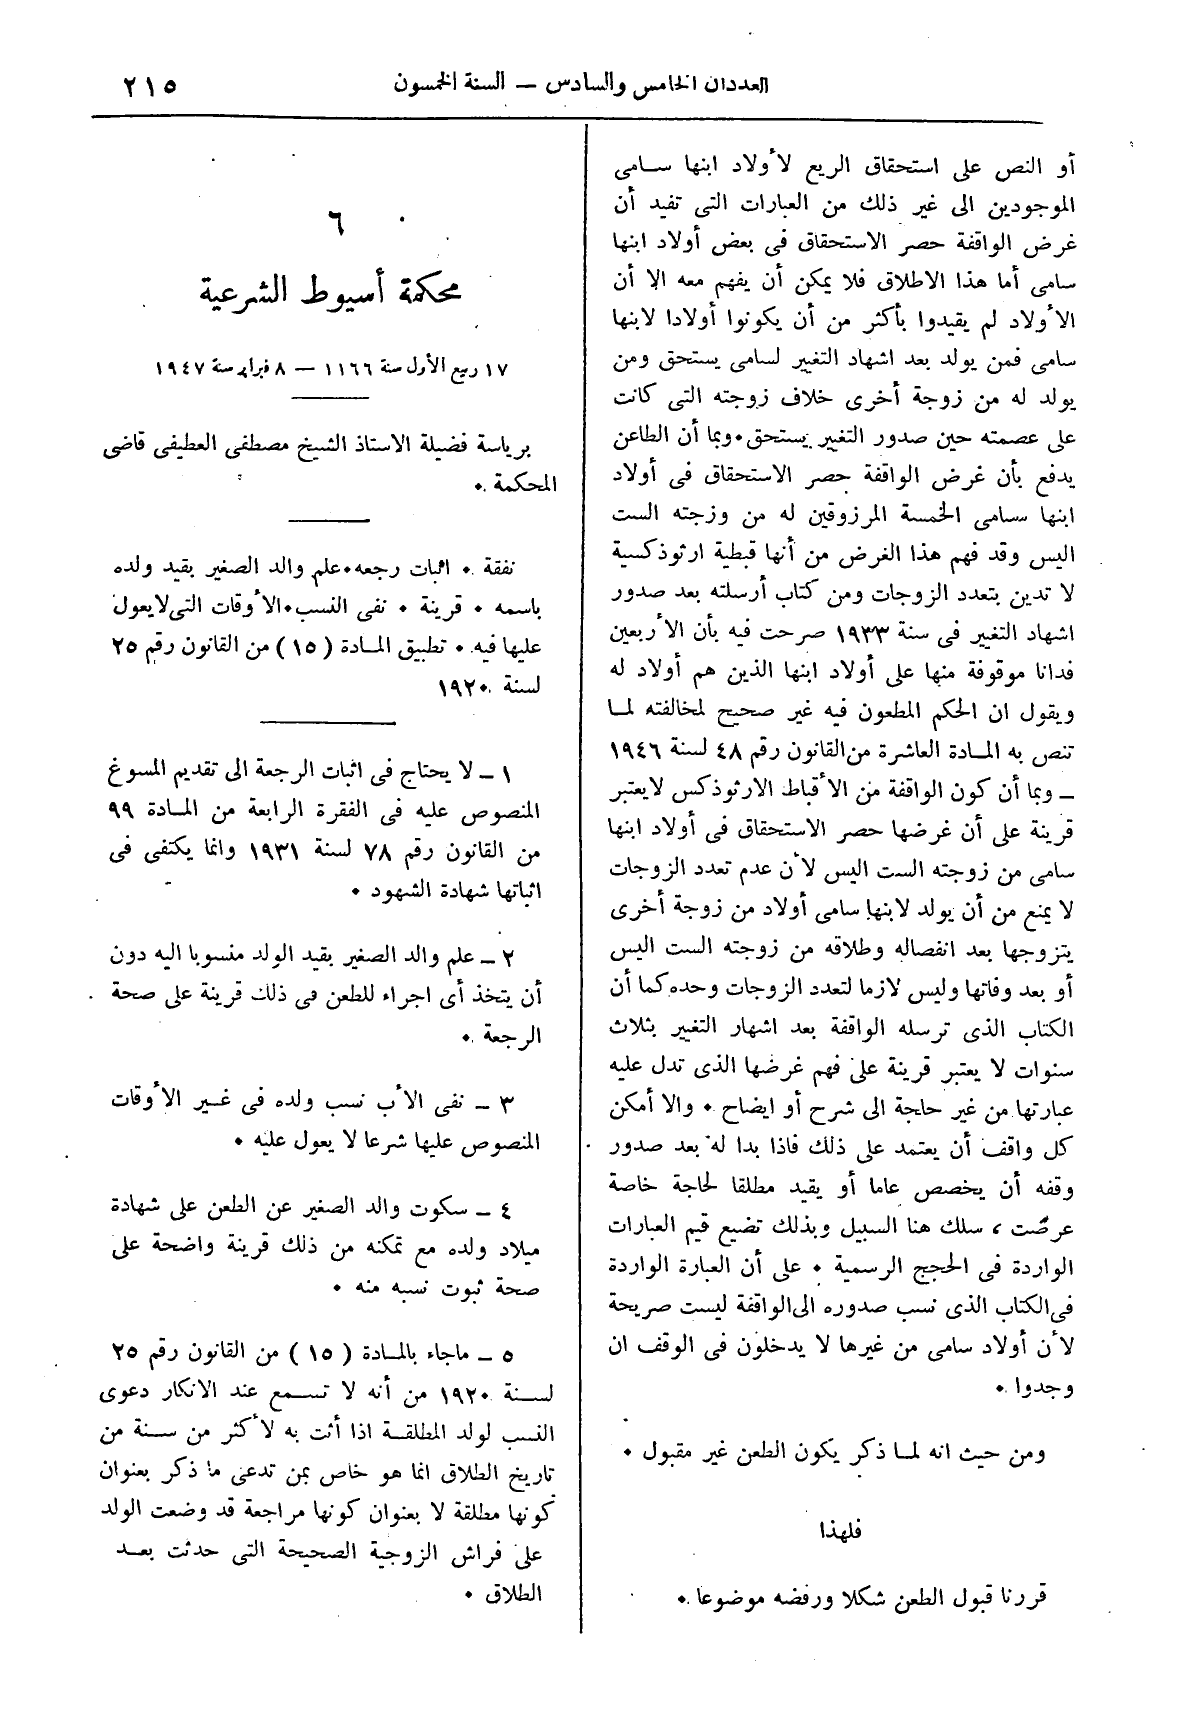 العددان الخامس والسادس — السنة الخمسون
٢١٥
أو النص على استحقاق الريع لأولاد ابنها سامى
الموجودين الى غير ذلك من العبارات التى تفيد أن
غرض الواقفة حصر الاستحقاق فى بعض أولاد ابنها
سامى أما هذا الاطلاق فلا يمكن أن يفهم معه الا أن
الأولاد لم يقيدوا بأكثر من أن يكونوا أولادا لابنها
سامى فمن يولد بعد اشهاد التغيير لسامى يستحق ومن
يولد له من زوجة أخرى خلاف زوجته التى كانت
على عصمته حين صدور التغيير يستحق٠ وبما أن الطاعن
يدفع بأن غرض الواقفة حصر الاستحقاق فى أولاد
ابنها سسامى الخمسة المرزوقين له من وزجته الست
اليس وقد فهم هذا الغرض من أنها قبطية ارثوذكسية
لا تدين بتعدد الزوجات ومن كتاب أرسلته بعد صدور
اشهاد التغيير فى سنة ١٩٣٣ صرحت فيه بأن الأربعين
فدانا موقوفة منها على أولاد ابنها الذين هم أولاد له
ويقول ان الحكم المطعون فيه غير صحيح لمخالفته لما
تنص به المادة العاشرة من القانون رقم ٤٨ لسنة ١٩٤٦
– وبما أن كون الواقفة من الأقباط الارثوذكس لايعتبر
قرينة على أن غرضها حصر الاستحقاق فى أولاد ابنها
سامى من زوجته الست اليس لأن عدم تعدد الزوجات
لا يمنع من أن يولد لابنها سامى أولاد من زوجة أخرى
يتزوجها بعد انفصاله وطلاقه من زوجته الست اليس
أو بعد وفاتها وليس لازما لتعدد الزوجات وحده كما أن
الكتاب الذى ترسله الواقفة بعد اشهار التغيير بثلاث
سنوات لا يعتبر قرينة على فهم غرضها الذى تدل عليه
عبارتها من غير حاجة الى شرح أو ايضاح ٠ والا أمكن
كل واقف أن يعتمد على ذلك فاذا بدا له بعد صدور
وقفه أن يخصص عاما أو يقيد مطلقا لحاجة خاصة
عرضت ، سلك هنا السبيل وبذلك تضيع قيم العبارات
الواردة فى الحجج الرسمية ٠ على أن العبارة الواردة
فى الكتاب الذى نسب صدوره الى الواقفة ليست صريحة
لأن أولاد سامى من غيرها لا يدخلون فى الوقف ان
وجدوا ٠
ومن حيث انه لما ذكر يكون الطعن غير مقبول ٠
فلهذا
قررنا قبول الطعن شكلا ورفضه موضوعا ٠
٦
محكمة أسيوط الشرعية
١٧ ربيع الأول سنة ١١٦٦ — ٨ فبراير سنة ١٩٤٧
برياسة فضيلة الاستاذ الشيخ مصطفى العطيفى قاضى
المحكمة ٠
نفقة ٠ اثبات رجعه٠ علم والد الصغير بقيد ولده
باسمه ٠ قرينة ٠ نفى النسب٠ الأوقات التى لايعول
عليها فيه ٠ تطبيق المادة ( ١٥ ) من القانون رقم ٢٥
لسنة ١٩٢٠
١ – لا يحتاج فى اثبات الرجعة الى تقديم المسوغ
المنصوص عليه فى الفقرة الرابعة من المادة ٩٩
من القانون رقم ٧٨ لسنة ١٩٣١ وانما يكتفى فى
اثباتها شهادة الشهود ٠
٢ – علم والد الصغير بقيد الولد منسوبا اليه دون
أن يتخذ أى اجراء للطعن فى ذلك قرينة على صحة
الرجعة ٠
٣ – نفى الأب نسب ولده فى غير الأوقات
المنصوص عليها شرعا لا يعول عليه ٠
٤ – سكوت والد الصغير عن الطعن على شهادة
ميلاد ولده مع تمكنه من ذلك قرينة واضحة على
صحة ثبوت نسبه منه ٠
٥ – ماجاء بالمادة ( ١٥ ) من القانون رقم ٢٥
لسنة ١٩٢٠ من أنه لا تسمع عند الانكار دعوى
النسب لولد المطلقة اذا أتت به لأكثر من سنة من
تاريخ الطلاق انما هو خاص بمن تدعى ما ذكر بعنوان
كونها مطلقة لا بعنوان كونها مراجعة قد وضعت الولد
على فراش الزوجية الصحيحة التى حدثت بعد
الطلاق ٠